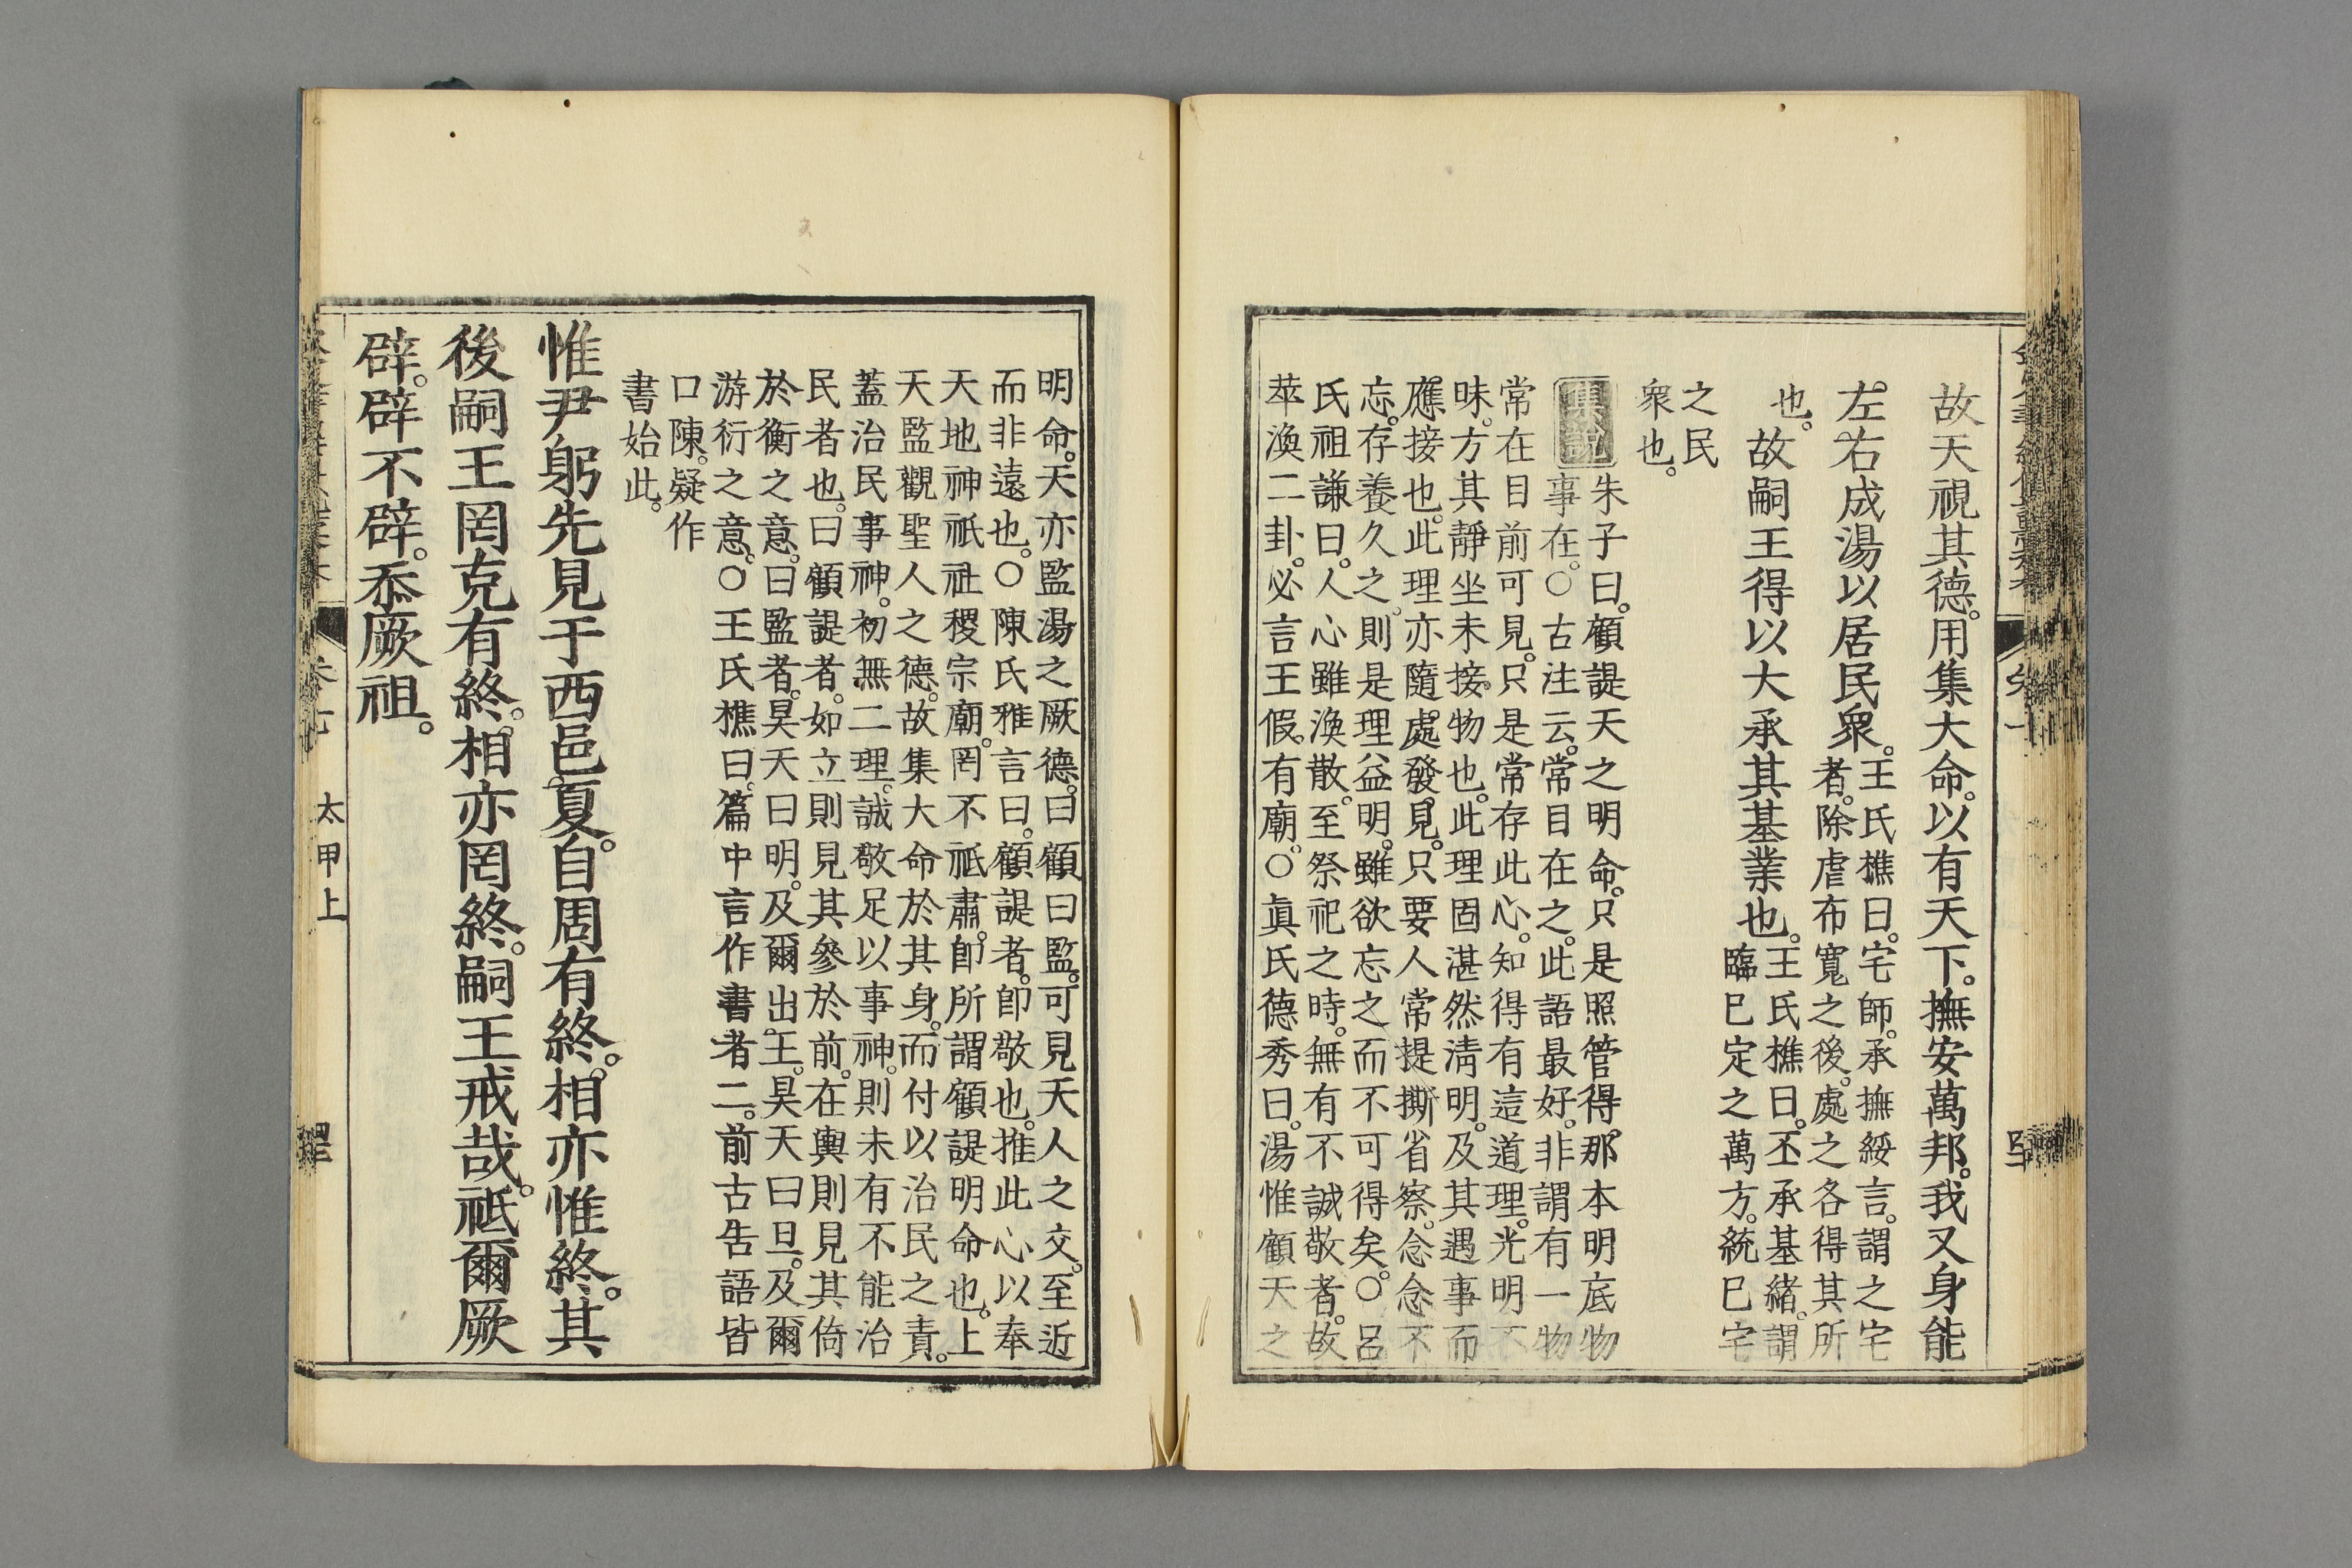 故天視其德。用集大命。以有天下。撫安萬邦。我又身能
左右成湯。以居民衆。王氏樵曰。宅師。承撫綏言。謂之宅
者。除虐布寬之後。處之各得其所
也。故嗣王得以大承其基業也。王氏樵曰。丕承基緒。謂
臨巳定之萬方。統巳宅
之民
衆也。
集說
朱子曰。顧諟天之明命。只是照管得。那本明底物
事在。○古注云。常目在之。此語最好。非謂有一物
常在目前可見。只是常存此心。知得有這道理。光明不
昧。方其靜坐未接物也。此理固湛然淸明。及其遇事而
應接也。此理亦隨處發見。只要人常提撕省察。念念不
忘。存養久之。則是理益明。雖欲忘之而不可得矣。○呂
氏祖謙曰。人心雖渙散。至祭祀之時。無有不誠敬者。故
萃渙二卦。必言王假有廟。○眞氏德秀曰。湯惟顧天之
明命。天亦監湯之厥德。曰顧曰監。可見天人之交。至近
而非遠也。○陳氏雅言曰。顧諟者。卽敬也。推此心以奉
天地神祇社稷宗廟。罔不祗肅。卽所謂顧諟明命也。上
天監觀聖人之德。故集大命於其身。而付以治民之責。
蓋治民事神。初無二理。誠敬足以事神。則未有不能治
民者也。曰顧諟者。如立則見其參於前。在輿則見其倚
於衡之意。曰監者。昊天曰明。及爾出王。昊天曰旦。及爾
游衍之意。○王氏樵曰。篇中言作書者二。前古告語皆
口陳。疑作
書始此。
惟尹躬先見于西邑夏。自周有終。相亦惟終。其
後嗣王罔克有終。相亦罔終。嗣王戒哉。祗爾厥
辟。辟不辟。忝厥祖。
太甲上